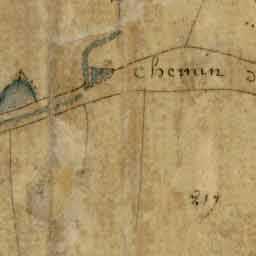 chemin d
217